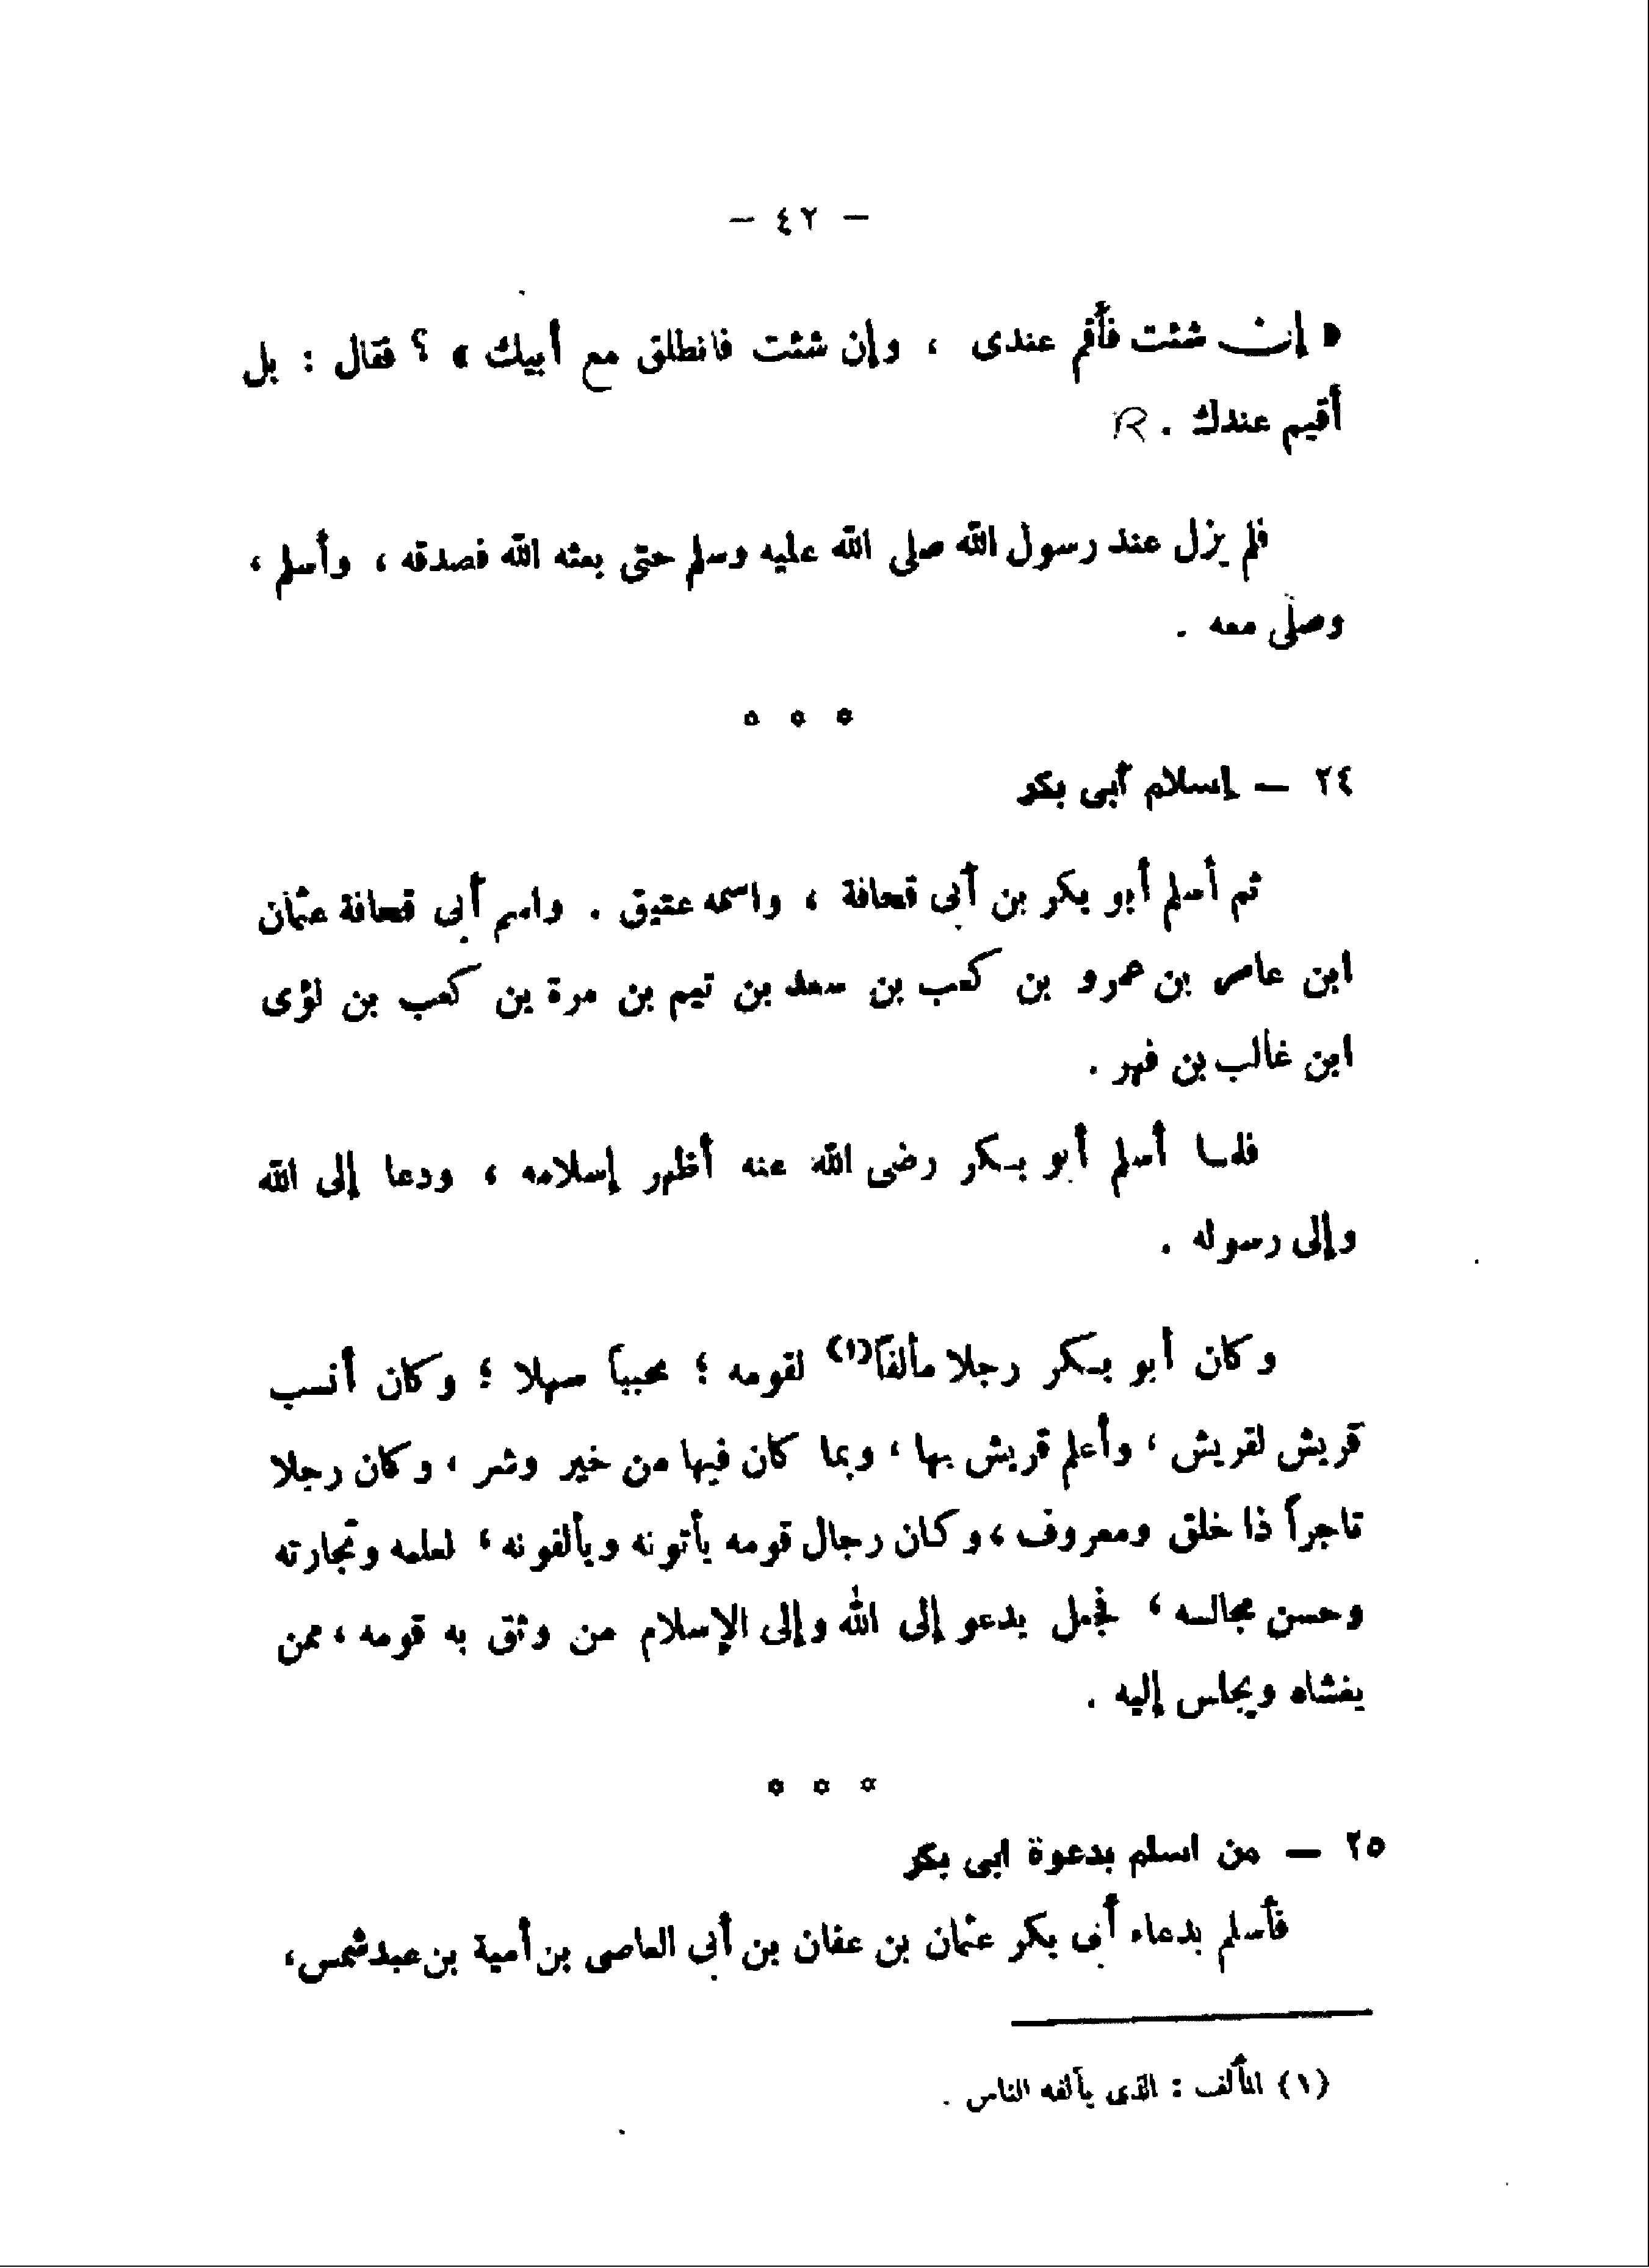 — ٤٢ —
« إن شئت فأقم عندى ، وإن شئت فانطلق مع أبيك » ؟ فقال : بل
أقيم عندك .
فلم يزل عند رسول الله صلى الله عليه وسلم حتى بعثه الله فصدقه ، وأسلم ،
وصلى معه .
* * *
٢٤ — إسلام أبى بكر
ثم أسلم أبو بكر بن أبى قحافة ، واسمه عتيق . واسم أبى قحافة عثمان
ابن عامر بن عمرو بن كعب بن سعد بن تيم بن مرة بن كعب بن لؤى
ابن غالب بن فهر .
فلما أسلم أبو بكر رضى الله عنه أظهر إسلامه ، ودعا إلى الله
وإلى رسوله .
وكان أبو بكر رجلا مألفاً(١) لقومه ؛ محبباً سهلا ؛ وكان أنسب
قريش لقريش ، وأعلم قريش بها ، وبما كان فيها من خير وشر ، وكان رجلا
تاجراً ذا خلق ومعروف ، وكان رجال قومه يأتونه ويألفونه ، لعلمه وتجارته
وحسن مجالسه ، فجعل يدعو إلى الله وإلى الإسلام من وثق به قومه ، ممن
يغشاه ويجلس إليه .
* * *
٢٥ — من اسلم بدعوة ابى بكر
فأسلم بدعاء أبى بكر عثمان بن عفان بن أبى العاصى بن أمية بن عبد شمس ،
(١) المألف : الذى يألفه الناس .